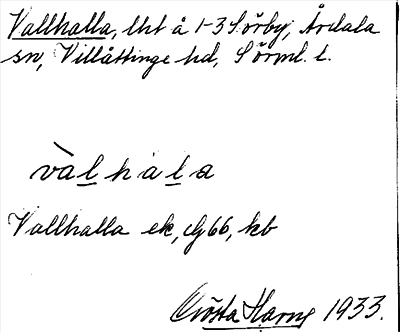 Vallhalla, lht å 1-3 Sörby, Årdala
sn, Villåttinge hd, Sörml. l.
vàlhála
Vallhalla ek, G66, kb
Gösta Harng 1933.